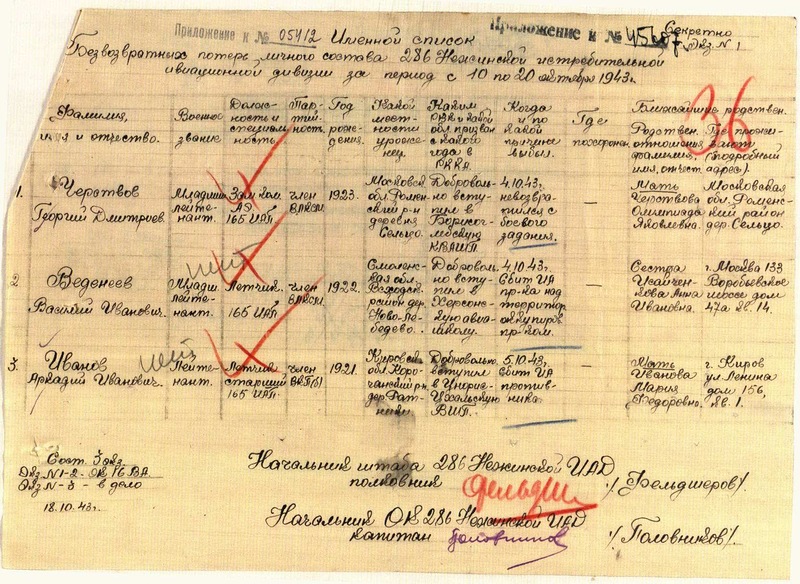 Приложение к № 05412
Приложение к №
Секретно
Экз. N 1
Именной список
Безвозвратных потерь личного состава 286 Нежинской истребительной
авиационной дивизии за период с 10 по 20 октября 1943 г.
36
Фамилия,
имя и отчество.
Военное
звание
Долж-
ность и
специаль-
ность.
Пар-
тий-
ность.
Год
рож-
дения.
Какой
мест-
ности
уроже-
нец.
Каким
РВК и какой
обл. призван
с какого
года в
РККА.
Когда
и по
какой
причине
выбыл.
Где
похоронен.
Ближайшие родствен.
Родствен.
отношения
фамилия,
имя, отчест.
Где прожи-
вают
(подробный
адрес).
1. Черствов
Георгий Дмитриев.
Младший
лейте-
нант.
Зам. ком.
АЭ
165 ИАП
член
ВЛКСМ.
1923.
Московск.
обл. Рамен-
ский р-н
деревня
Сельцо.
Добровол-
но всту-
пил в
Борисог-
лебскую
КВАШП
4.10.43г.
невозвра-
тился с
боевого
задания.
—
Мать
Черствова
Олимпиада
Яковлевна.
Московская
обл. Раменс-
кий район
дер. Сельцо.
2 Веденеев
Василий Иванович.
Младш.
лейте-
нант.
Летчик
165 ИАП
член
ВЛКСМ.
1922.
Смолен-
ская обл.
район дер.
Ново-Ле-
бедево.
Доброволь-
но всту-
пил в
Херсонс-
кую авиа-
школу.
4.10.43г.
сбит ИА
пр-ка над
территор.
оккупиров.
пр-ком.
—
Сестра
Исайчен-
кова Анна
Ивановна.
г. Москва 133
Воробьевское
шоссе дом
47а кв. 14.
3. Иванов
Аркадий Иванович.
Лейте-
нант.
Летчик
старший
165 ИАП.
член
ВКП(б)
1921.
Кировск.
обл.
дер.
Добровольно
вступил
в
ВШП.
5.10.43г.
сбит ИА
против-
ника.
—
Мать
Иванова
Мария
Федоровна.
г. Киров
ул. Ленина
дом 156,
кв. 1.
Сост. 3 экз.
Экз. N 1-2 - ОК 16 ВА.
Экз. N - 3 - в дело
18.10.43г.
Начальник штаба 286 Нежинской ИАД
полковник
Фельдш
/Фельдшеров/.
Начальник ОК 286 Нежинской ИАД
капитан
Головников
/Головников/.